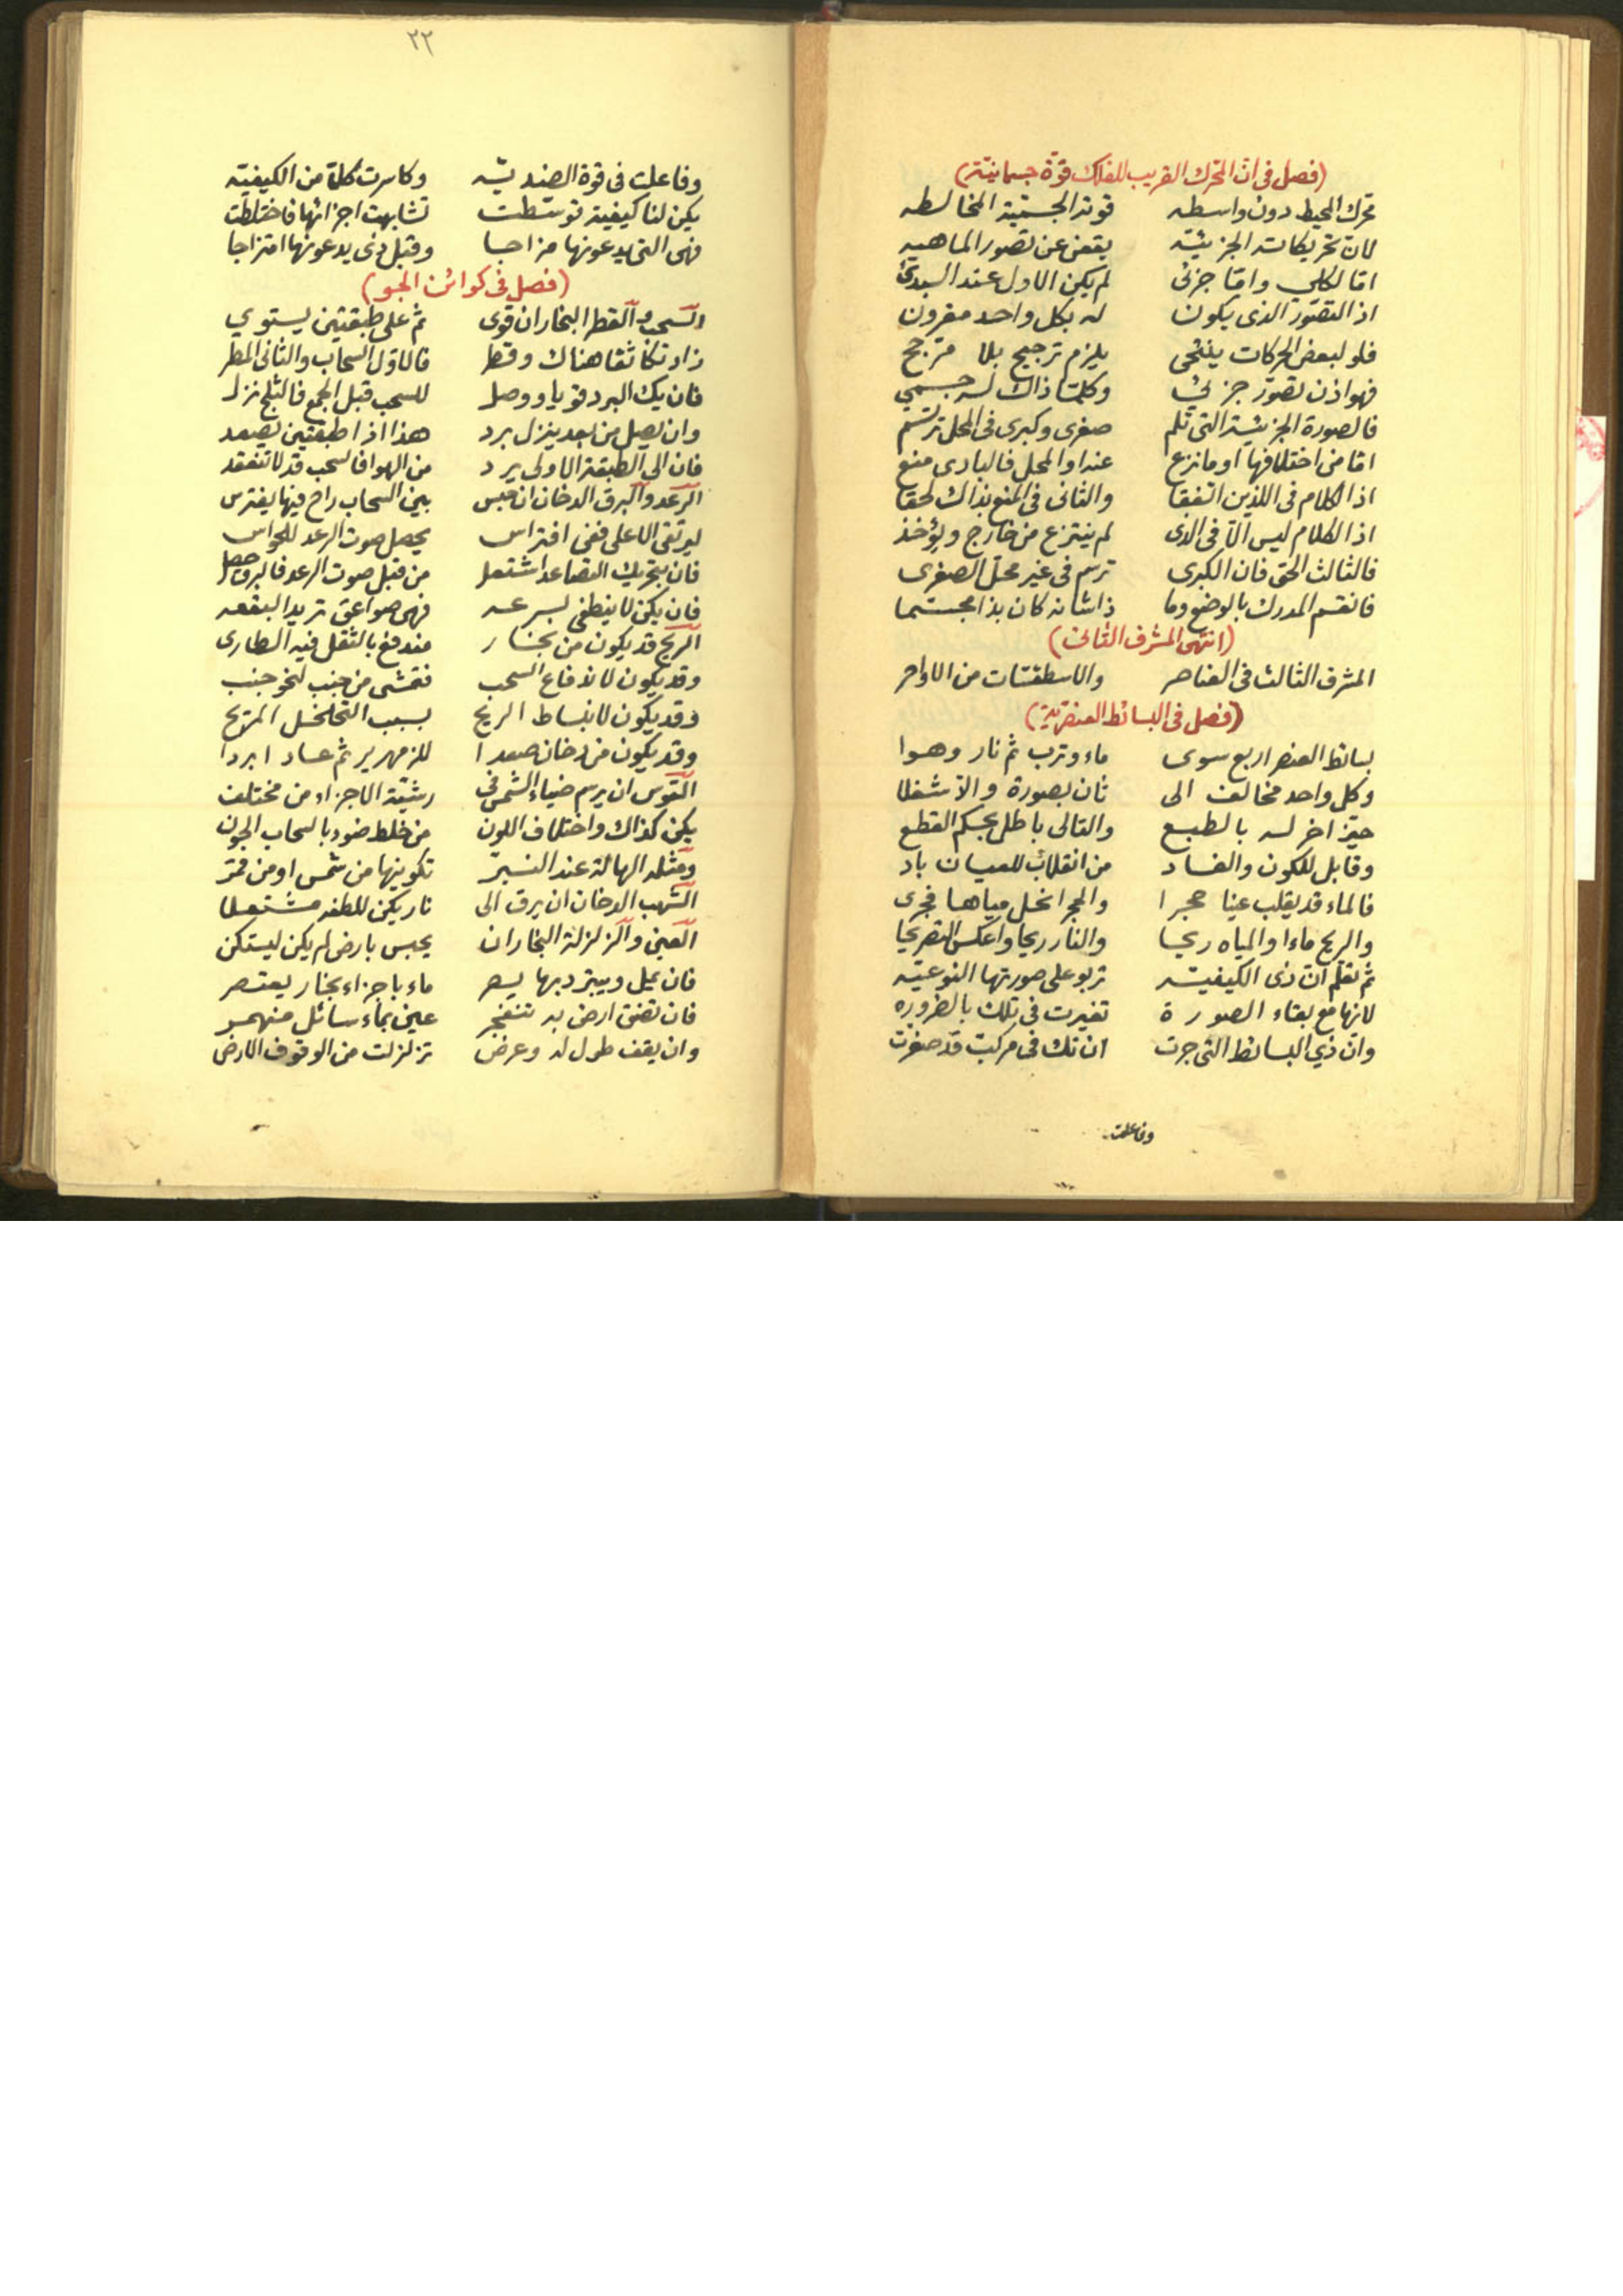 (فصل فى ان المحرك القريب للفلك قوة جسمانية)
محرك المحيط دون واسطه قوته الجسمية المخالطه
لان تحريكاته الجزئيته يقعن عن تصور الماهيه
اما لكلي واما جزئى لم يكن الاول عند السيدئ
اذ التصور الذى يكون له بكل واحد مقرون
فلو لبعض الحركات ينتحى يلزم ترجيح بلا مرجح
فهو اذن تصور جزئى وكلما ذاك له جسمي
فالصورة الجزئية التى تلم صغرى وكبرى فى المحل ترتسم
اما من اختلافها او ما نزع عنه او المحل فالبادى منع
اذ الكلام فى اللذين اتفقا والثانى فى المنع بذاك لحقا
اذ الكلام ليس الا فى الذى لم ينتزع من خارج ويؤخذ
فالثالث الحق فان الكبرى ترسم فى غير محل الصغرى
فانقسم المدرك بالوضع وما ذا شانه كان بذا مجسما
(انتهى المشرف الثانى)
المشرف الثالث فى العناصر والاسطقسات من الاواخر
(فصل فى البسائط العنصرية)
بسائط العنصر اربع سوى ماء وترب ثم نار وهوا
وكل واحد مخالف الى ثان بصورة والا شغلا
حيز اخر له بالطبع والتالى باطل بحكم القطع
وقابل للكون والفساد من انقلاب للعيان باد
فالماء قد يقلب عينا حجرا والحجر انحل مياها فجرى
والريح ماءا والمياه ريحا والنار ريحا واعكس التصريحا
ثم تعلم ان ذى الكيفيته تربو على صورتها النوعيه
لانها مع بقاء الصورة تغيرت فى تلك بالضروره
وان ذي البسائط التى جرت ان تك فى مركب قد صغرت
وفاعلت
٢٢
وفاعلت فى قوة الضديته وكاسرت كلا من الكيفيته
يكن لنا كيفية توسطت تشابهت اجزائها فاختلطت
فهى التى يدعونها مزاجا وقبل ذى يدعونها امتزاجا
(فصل فى كوائن الجو)
السحب والقطر البخار ان قوى ثم على طبقتين يستوي
زاد تكاثفا هناك وقطر فالاول السحاب والثانى المطر
فان يك البرد قويا ووصل للسحب قبل الجمع فالثلج نزل
وان يصل من بعد ينزل برد هذا اذا طبقتين يصعد
فان الى الطبقة الاولى يرد من الهوا فالسحب قد لا تنعقد
الرعد والبرق الدخان ان حبس بين السحاب راح فيها يفترس
ليرتقى الاعلى ففى افتراس يحصل صوت الرعد للحواس
فان بتحريك التصاعد اشتعل من قبل صوت الرعد فالبرق حصل
فان يكن لا ينطفى بسرعه فهى صواعق تريد البقعه
الريح قد يكون من بخار مندفع بالثقل فيه الطارى
وقد يكون لاندفاع السحب فتمشى من جنب لنحو جنب
وقد يكون لانبساط الريح بسبب التخلخل المزيح
وقد يكون من دخان صعدا للزمهرير ثم عاد ابردا
القوس ان يرسم ضياء الشمس فى رشية الاجزاء من مختلف
يكن كذاك واختلاف اللون من خلط ضوء بالسحاب الجون
ومثله الهالة عند النير تكوينها من شمس او من قمر
الشهب الدخان ان يرق الى نار يكن للطفه مشتعلا
العين والزلزلة البخار ان يحبس بارض لم يكن ليستكن
فان يمل ويبترد بها يصر ماء باجزاء بخار يعتصر
فان تضق ارض به تنفجر عين بماء سائل منهمر
وان يقف طول له وعرض تزلزلت من الوقوف الارض